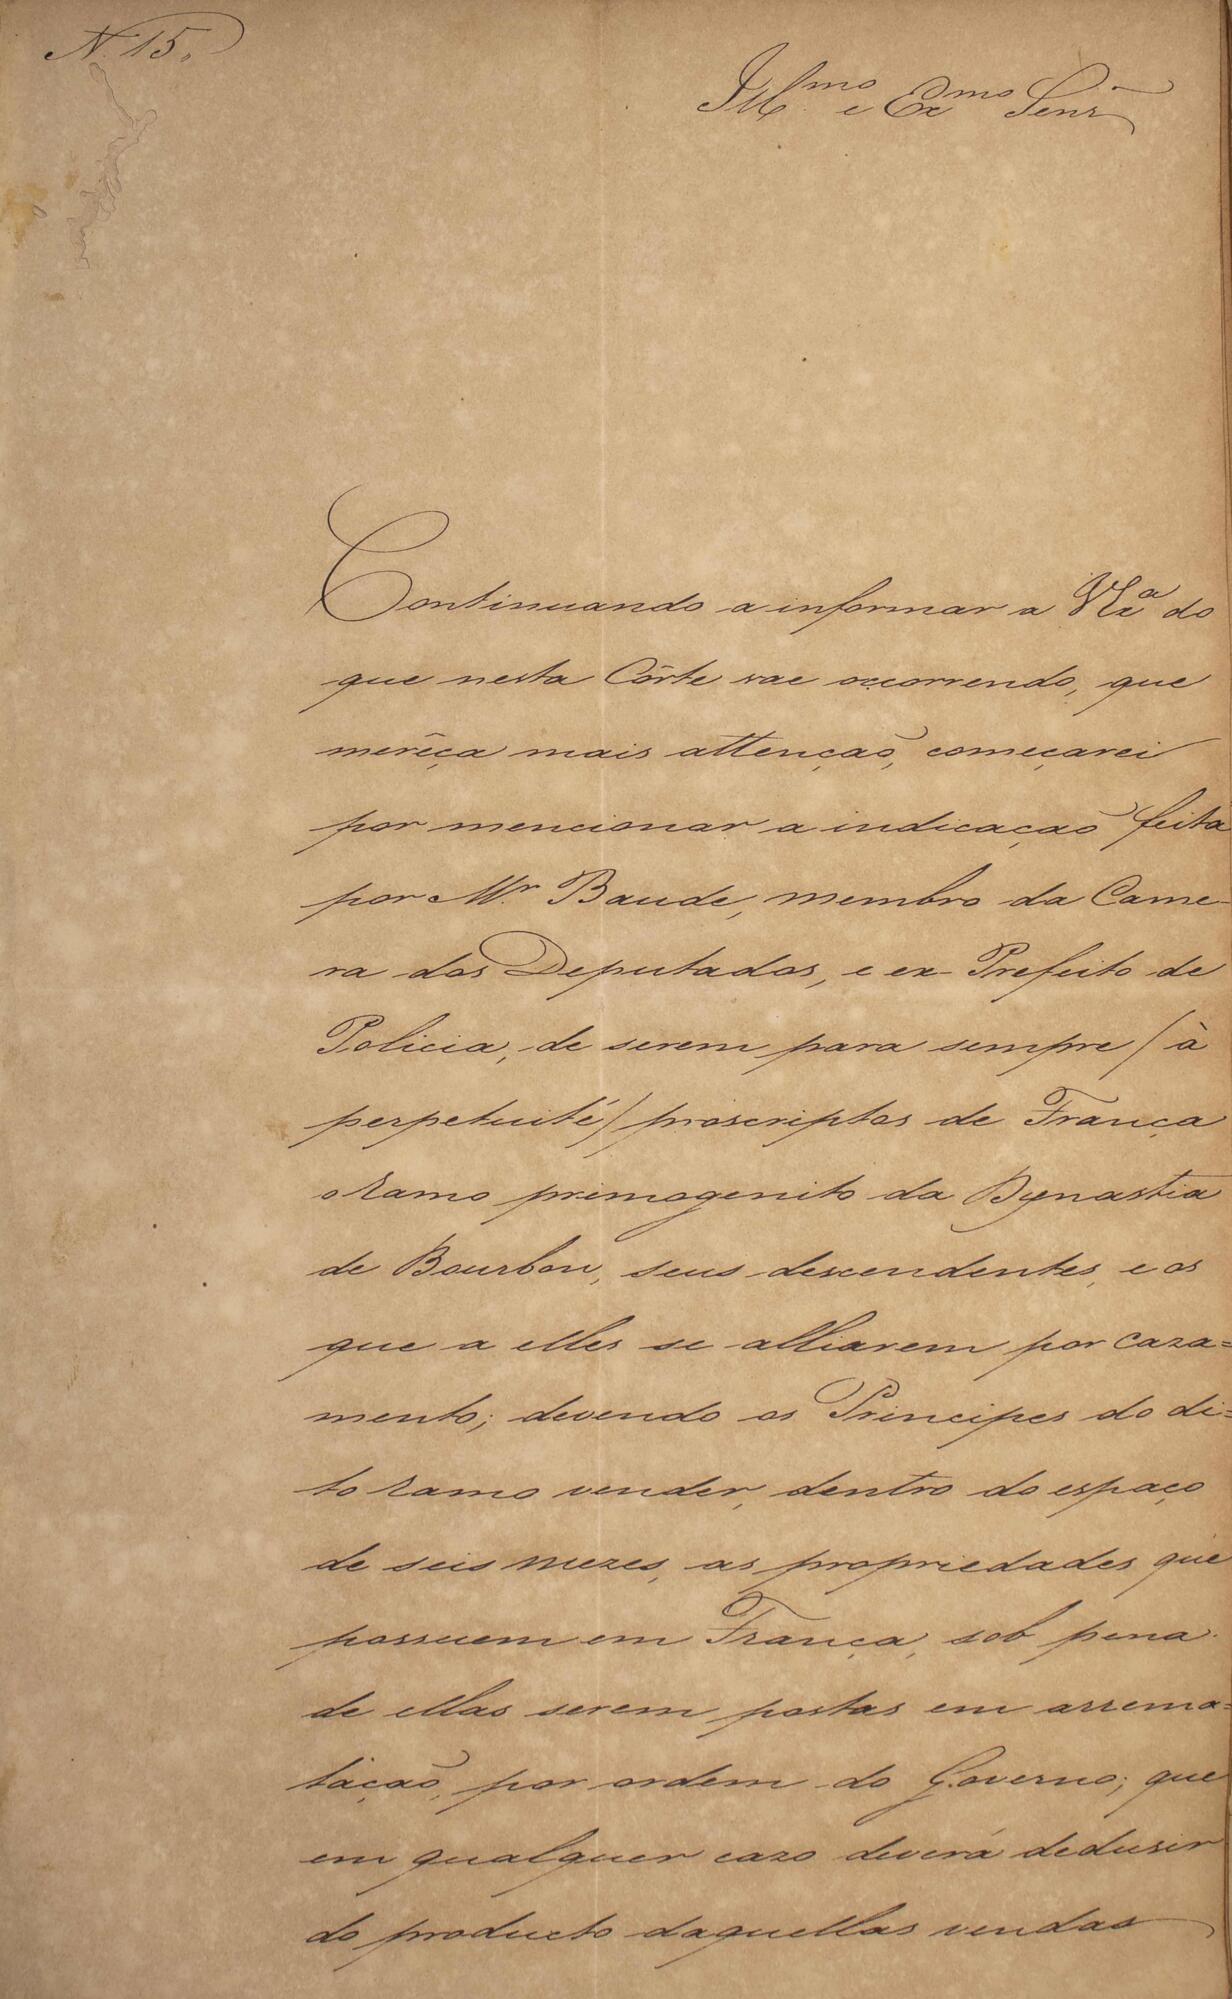 N. 15.
Ill.mo e Ex.mo Senr
Continuando a informar a VEx.a do
que nesta Côrte vae occorrendo, que
merêça mais attenção, começarei
por mencionar a indicação feita
por Mr. Baude, membro da Came-
ra dos Deputados, e ex-Prefeito de
Policia, de serem para sempre / à
perpetuité / proscriptos de França
o ramo primogenito da Dynastia
de Bourbon, seus descendentes, e os
que a elles se alliarem por caza=
mento; devendo os Principes do di=
to ramo vender, dentro do espaço
de seis mezes, as propriedades que
possuem em França, sob pena
de ellas serem postas em arrema=
tação, por ordem do Governo; que
em qualquer cazo deverá dedusir
do producto daquellas vendas